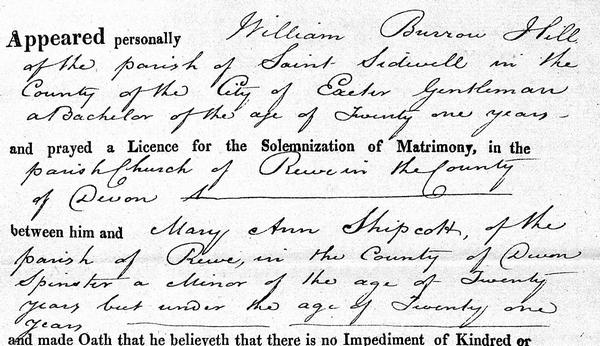 Appeared personally William Burrow Hill
of the parish of Saint Sidwell in the
County of the City of Exeter Gentleman
a Bachelor of the age of Twenty one years -
and prayed a Licence for the Solemnization of Matrimony, in the
parish Church of Rewe in the County
of Devon
between him and Mary Ann Shipcott, of the
parish of Rewe, in the County of Devon
Spinster a Minor of the age of Twenty
years but under the age of Twenty one
years
and made Oath that he believeth that there is no Impediment of Kindred or